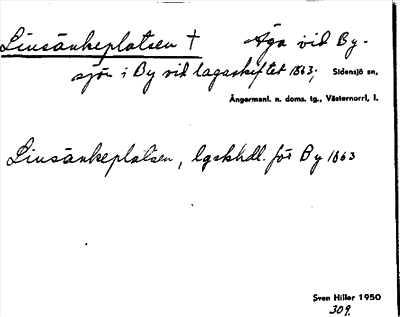 Linsänkeplatsen † Äga vid By-
sjön i By vid lagaskiftet 1863; Sidensjö sn,
Ångermanl. n. doms. tg., Västernorrl. l.
Linsänkeplatsen, lgskhdl. för By 1863
Sven Hiller 1950
309.